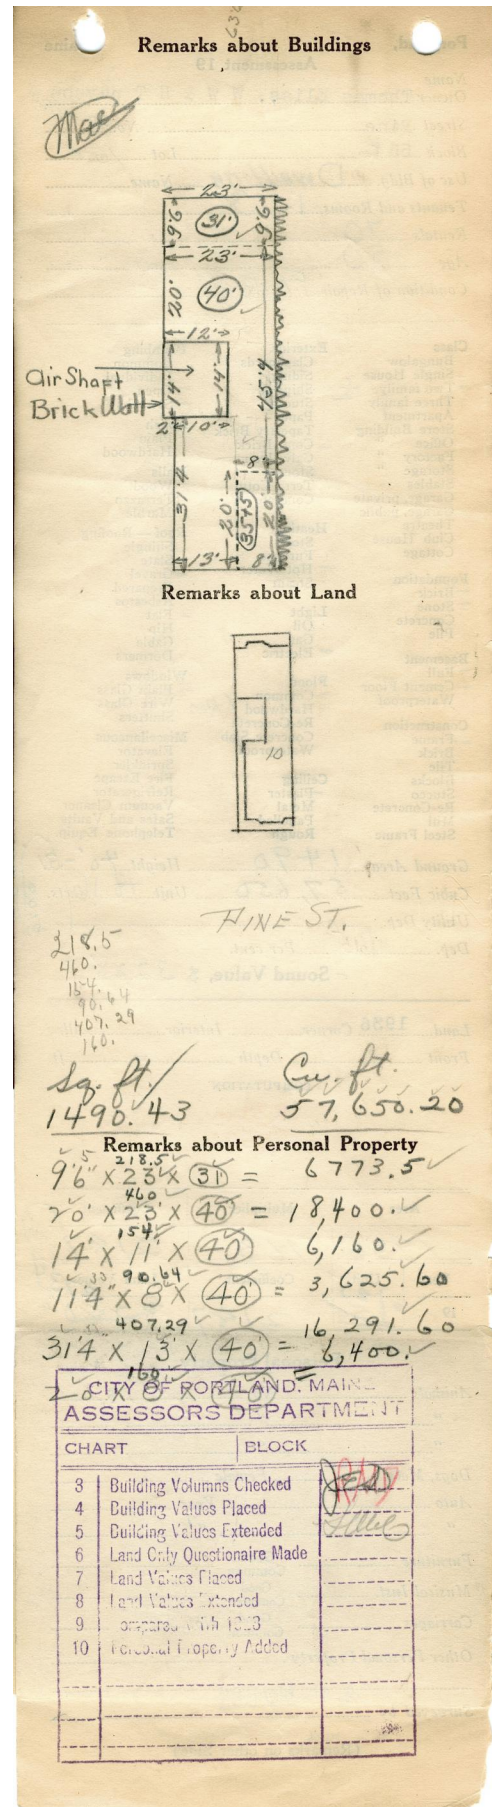 Remarks about Buildings
23'
9'6" 31' 9'6"
23'
20' 40'
12'
Air Shaft 14' 14' 45'4
Brick Wall
2' 10'
8'
31'4 20' 35 45 20'
13' 8'
Remarks about Land
10
PINE ST.
218.5
460.
154.
90.64
407.29
160.
Sq. ft. Cu. ft.
1490.43 57,650.20
Remarks about Personal Property
218.5
9'6" X 23' X 31' = 6773.5
460
20' X 23' X 40' = 18,400.
154
14' X 11' X 40' 6,160.
90.64
11'4" X 8' X 40' = 3,625.60
407.29
31'4" X 13' X 40' = 16,291.60
160 6,400.
20 X 8 X 40 =
CITY OF PORTLAND, MAINE
ASSESSORS DEPARTMENT
CHART BLOCK
3 Building Volumns Checked
4 Building Values Placed
5 Building Values Extended
6 Land Only Questionaire Made
7 Land Values Placed
8 Land Values Extended
9 Compared With 1923
10 Personal Property Added